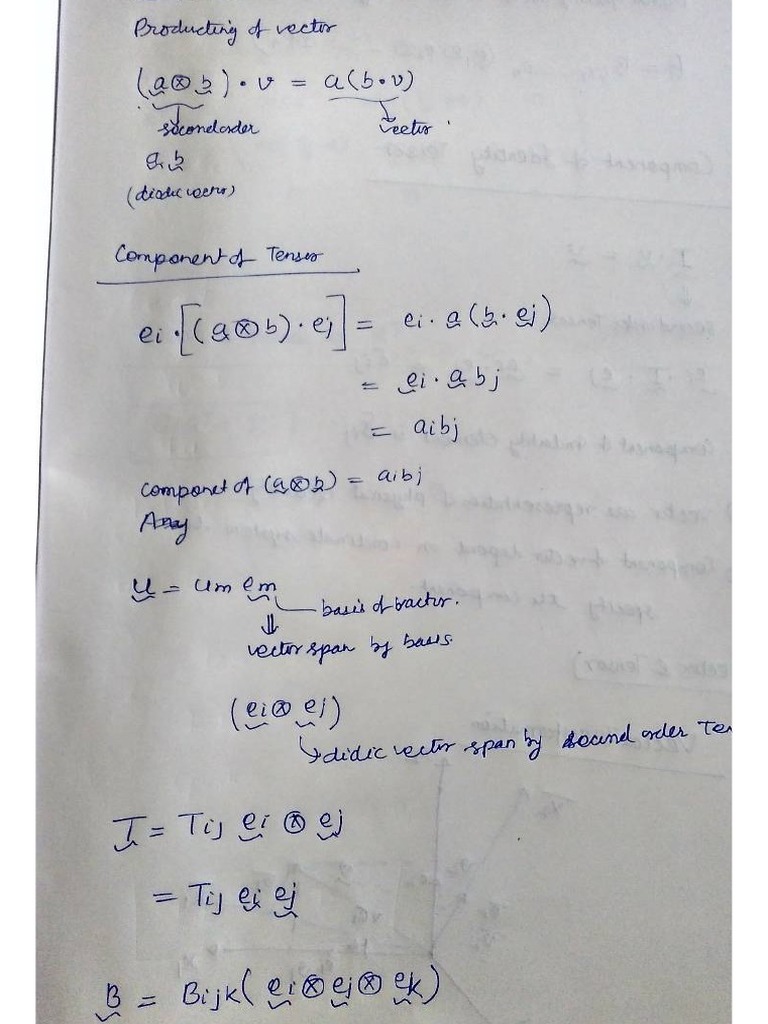 Producting of vector
(a⊗b)·v = a(b·v)
second order vector
a b
(diadic vector)
Component of Tensor
ei·[(a⊗b)·ej] = ei·a(b·ej)
= ei·a bj
= aibj
componet of (a⊗b) = aibj
u = um em
basis of
⇓
vector span by basis
(ei⊗ej)
↳didic vector span by second order Te
T = Tij ei⊗ej
= Tij ei ej
B = Bijk(ei⊗ej⊗ek)